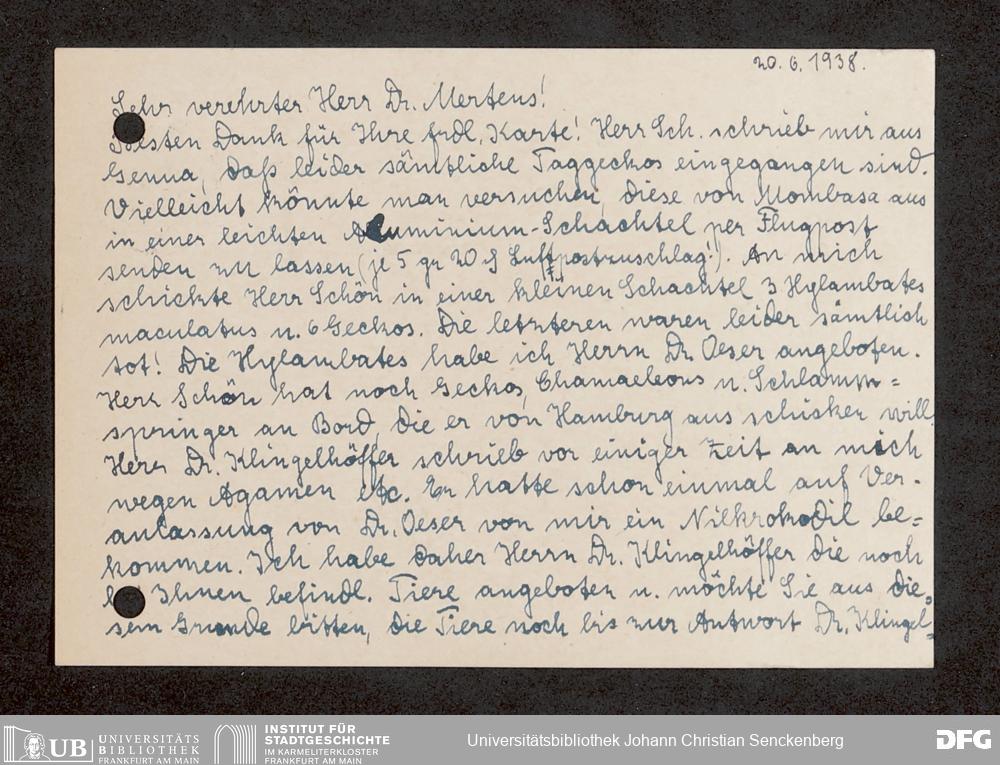 20. 6. 1938.
Sehr verehrter Herr Dr. Mertens!
Besten Dank für Ihre frdl. Karte! Herr Sch. schrieb mir aus
Genua, daß leider sämtliche Taggeckos eingegangen sind.
Vielleicht könnte man versuchen, diese von Mombasa aus
in einer leichten Aluminium-Schachtel per Flugpost
senden zu lassen (je 5 gr 20 ₰ Luftpostzuschlag!). An mich
schickte Herr Schön in einer kleinen Schachtel 3 Hylambates
maculatus u. 6 Geckos. Die letzteren waren leider sämtlich
tot! Die Hylambates habe ich Herrn Dr. Oeser angeboten.
Herr Schön hat noch Geckos, Chamaeleons u. Schlamm=
springer an Bord, die er von Hamburg aus schicken will.
Herr Dr. Klingelhöffer schrieb vor einiger Zeit an mich
wegen Agamen etc. Er hatte schon einmal auf Ver-
anlassung von Dr. Oeser von mir ein Nilkrokodil be=
kommen. Ich habe daher Herrn Dr. Klingelhöffer die noch
b Ihnen befindl. Tiere angeboten u. möchte Sie aus die=
sem Grunde bitten, die Tiere noch bis zur Antwort Dr. Klingel=
UB UNIVERSITÄTS
BIBLIOTHEK
FRANKFURT AM MAIN
INSTITUT FÜR
STADTGESCHICHTE
IM KARMELITERKLOSTER
FRANKFURT AM MAIN
Universitätsbibliothek Johann Christian Senckenberg
DFG